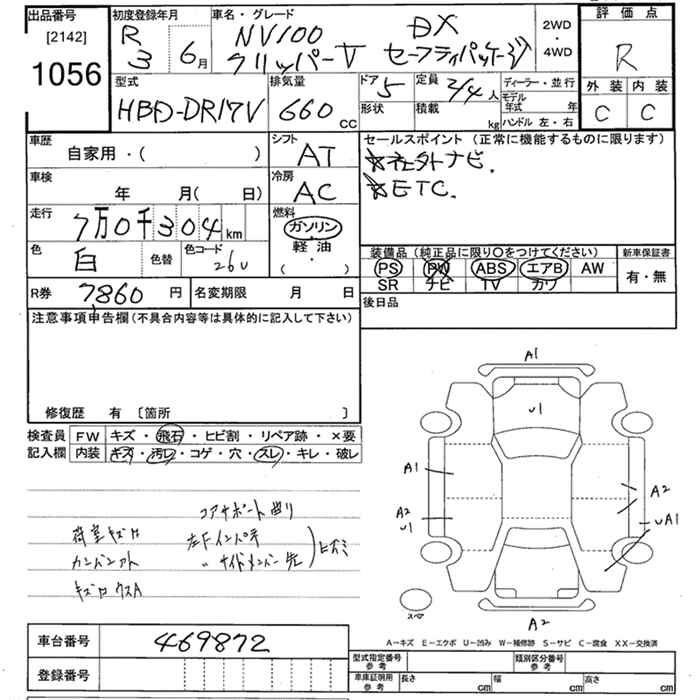 出品番号 初度登録年月 車名・グレード 評価点
[2142] R 3 6月 NV100 DX 2WD ・ 4WD R
1056 クリッパーV セーフティパッケージ
型式 排気量 ドア 5 定員 2/4人 ディーラー・並行 外装 内装
HBD-DR17V 660 CC 形状 積載 kg モデル年式 年 C C
ハンドル 左・右
車歴 シフト セールスポイント (正常に機能するものに限ります)
自家用・( ) AT ☆ネクストナビ.
車検 冷房 ☆ETC.
年 月(日) AC
走行 7万0千304km 燃料 ガソリン
軽油
・( )
色 白 色替 色コード 26U 装備品 (純正品に限り〇をつけてください) 新車保証書
PS PW ABS エアB AW 有・無
SR ナビ TV カワ
R券 7860円 名変期限 月 日 後日品
注意事項申告欄 (不具合内容等は具体的に記入して下さい)
修復歴 有 〔箇所 〕
検査員 FW キズ・飛石・ヒビ割・リペア跡・×要
記入欄 内装 キズ・汚レ・コゲ・穴・スレ・キレ・破レ
A1
U1
A1
A2
U1
A2
UA1
A2
スペア
コアサポート曲り
荷室キズ穴 左Fインパネ
カンバンアト 〃サイドメンバー先
A-キズ E-エクボ U-凹み W-補修跡 S-サビ C-腐食 XX-交換済
車台番号 469872
型式指定番号 参考 類別区分番号 参考
登録番号 車庫証明用 参考 長さ cm 幅 cm 高さ cm